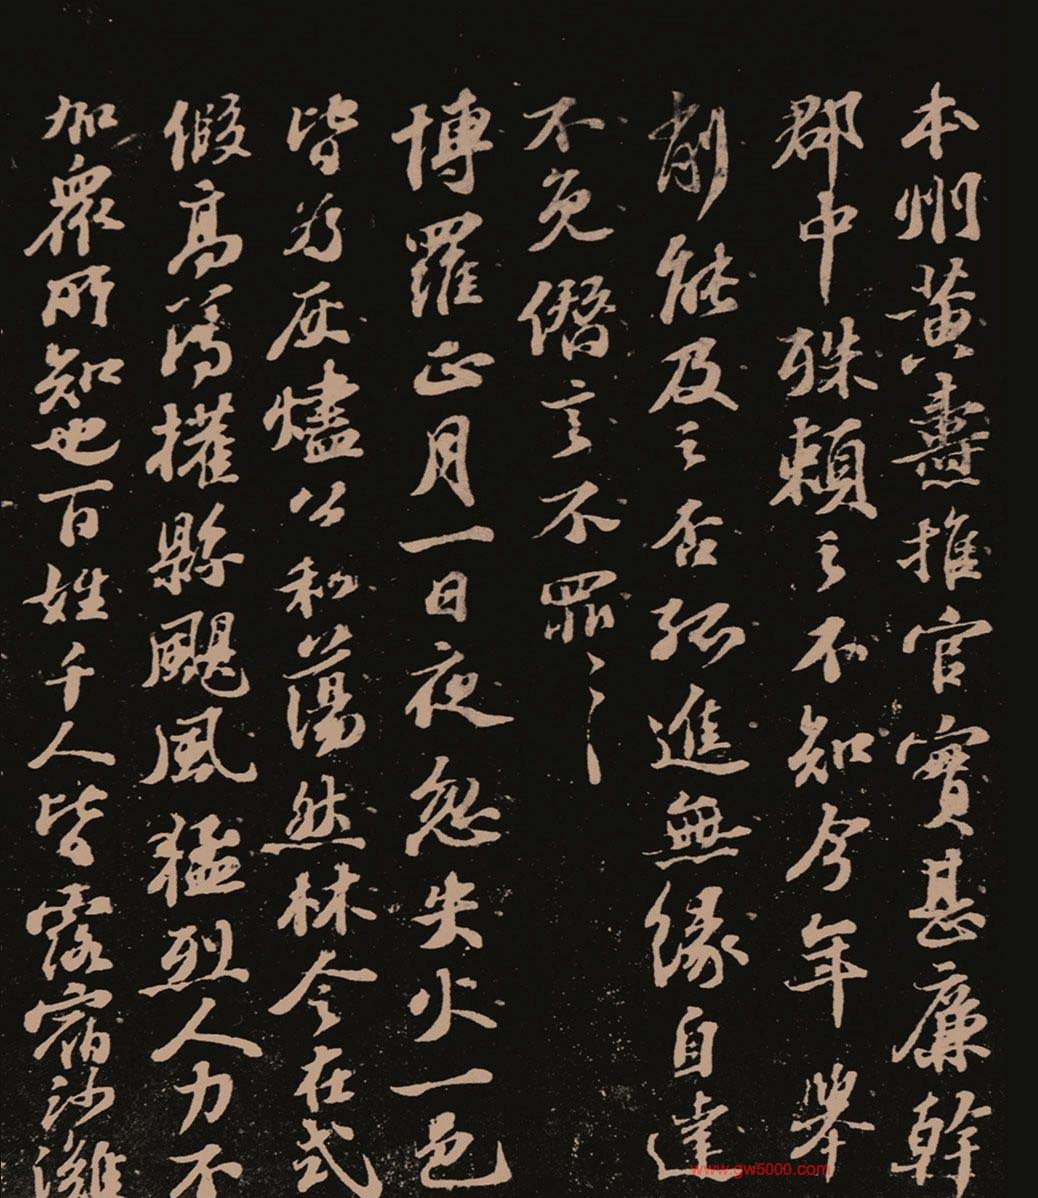 本州黃燾推官實甚廉幹
郡中殊賴之不知今年舉
削能及之否孤進無緣自達
不免僭言不罪〻〻
博羅正月一日夜忽失火一邑
皆為灰燼公私蕩然林令在式
假高為權縣颶風猛烈人力不
加眾所知也百姓千人皆露宿沙灘
www.gw5000.com